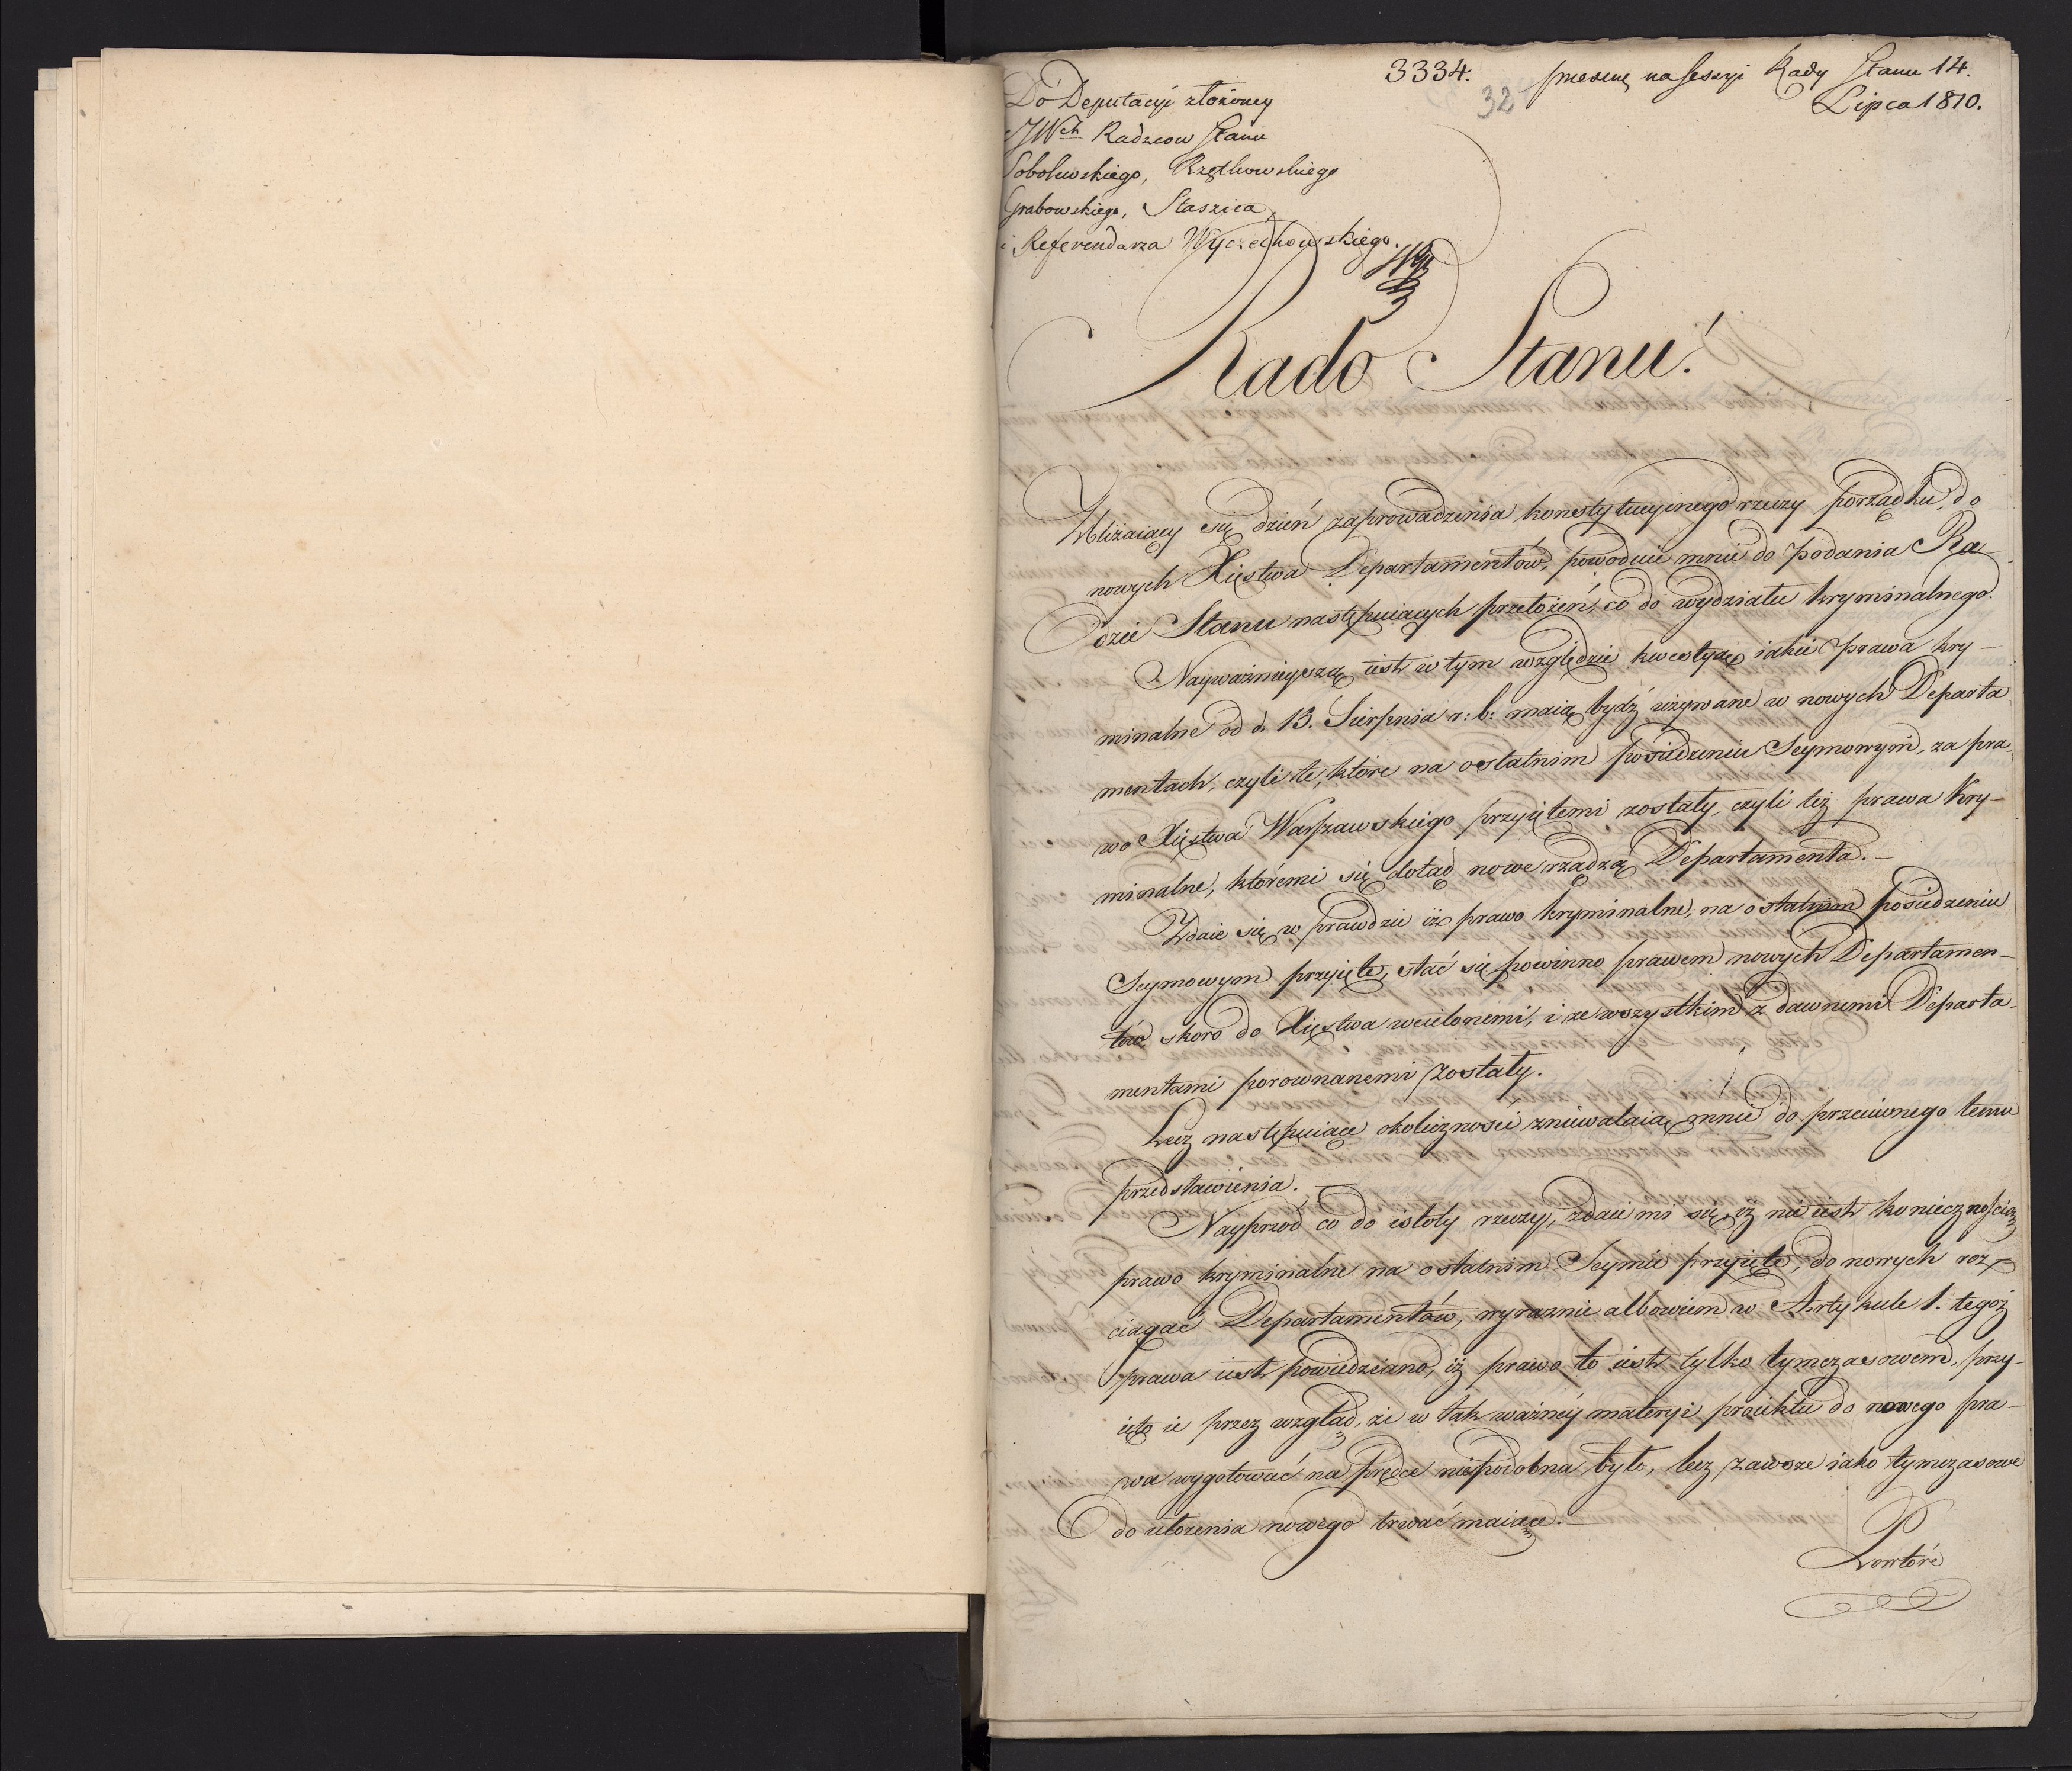 3334.
32
presen na Sessyi Rady Stanu 14.
Lipca 1810.
Do Deputacyi złożoney
z JWch Radzcow Stanu
Sobolewskiego, Rzętkowskiego
Grabowskiego, Staszica,
i Referendarza Wyczechowskiego.
Rado Stanu!
Zbliżaiący się dzień zaprowadzenia konstytucyinego rzeczy porządku, do
nowych Xięstwa Departamentów, powoduie mnie do podania Ra
dzie Stanu następuiących przełożeń, co do wydziału kryminalnego.
Nayważnieyszą iest w tym względzie kwestyą, iakie prawa kry-
minalne od d. 13. Sierpnia r: b: maią bydź używane w nowych Departa
mentach, czyli te, które na ostatnim posiedzeniu Seymowym, za pra
wo Xięstwa Warszawskiego przyiętemi zostały, czyli też prawa kry-
minalne, któremi się dotąd nowe rządzą Departamenta.-
Zdaie się w prawdzie iż prawo kryminalne, na ostatnim posiedzeniu
Seymowym przyięte, stać się powinno prawem nowych Departamen-
tów skoro do Xięstwa wcielonemi, i ze wszystkim z dawnemi Departa-
mentami porownanemi zostały.
Lecz następuiące okoliczności zniewalaią mnie do przeciwnego temu
przedstawienia. -
Nayprzod co do istoty rzeczy, zdaie mi się, iż nie iest koniecznością
prawo kryminalne na ostatnim Seymie przyięte, do nowych roz-
ciągać Departamentów, wyraznie albowiem w Artykule 1. tegoż
prawa iest powiedziano, iż prawo to iest tylko tymczasowem, przy-
ięto ie przez wzgląd, że w tak ważney materyi proiektu do nowego pra-
wa wygotować na prędce niepodobna było, lecz zawsze iako tymczasowe
do ułożenia nowego trwać maiące.-
Powtóre